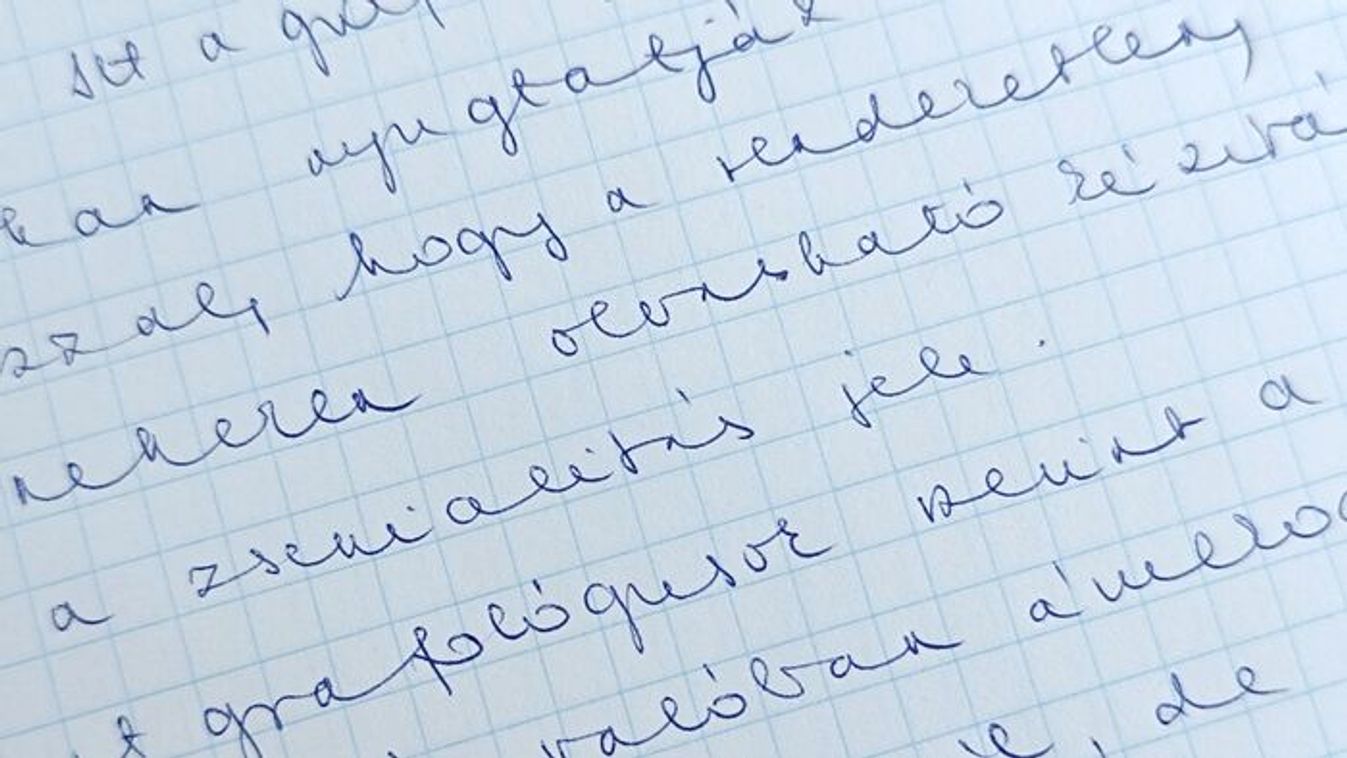 a
kan nyugtatják
azzal, hogy a rendezetlen,
nehezen olvasható kézírá
a zsenialitás jele.
grafológusok szerint a
valóban
, de